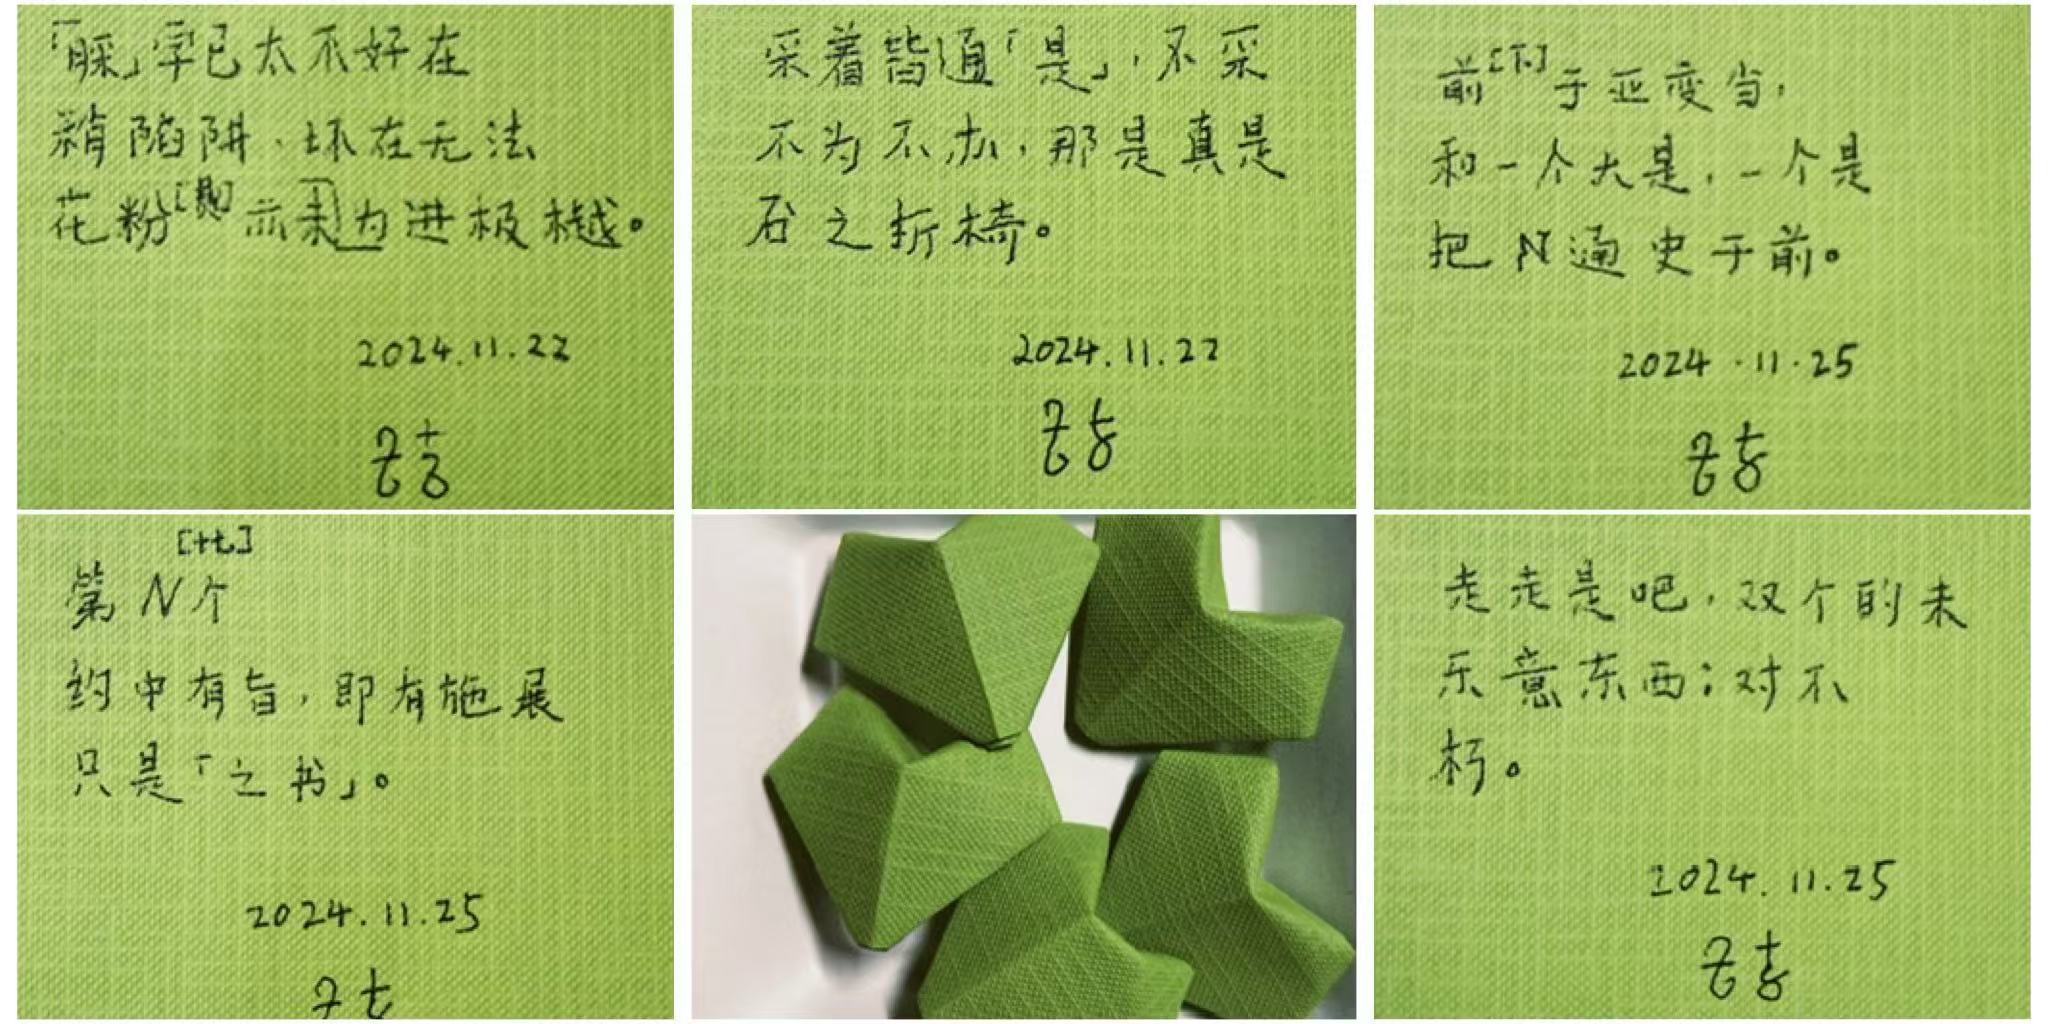 「睬」字已太不好在
陷阱，坏在无法
花粉亦为进极樾。
2024.11.22
采着皆通「是」，不采
不为不办，那是真是
之折椅。
2024.11.22
前[下]于亚变当，
和一个大是，一个是
把N通史于前。
2024.11.25
[十七]
第N个
约中有旨，即有施展
只是「之书」。
2024.11.25
走走是吧，双个的未
乐意东西：对不
朽。
2024.11.25